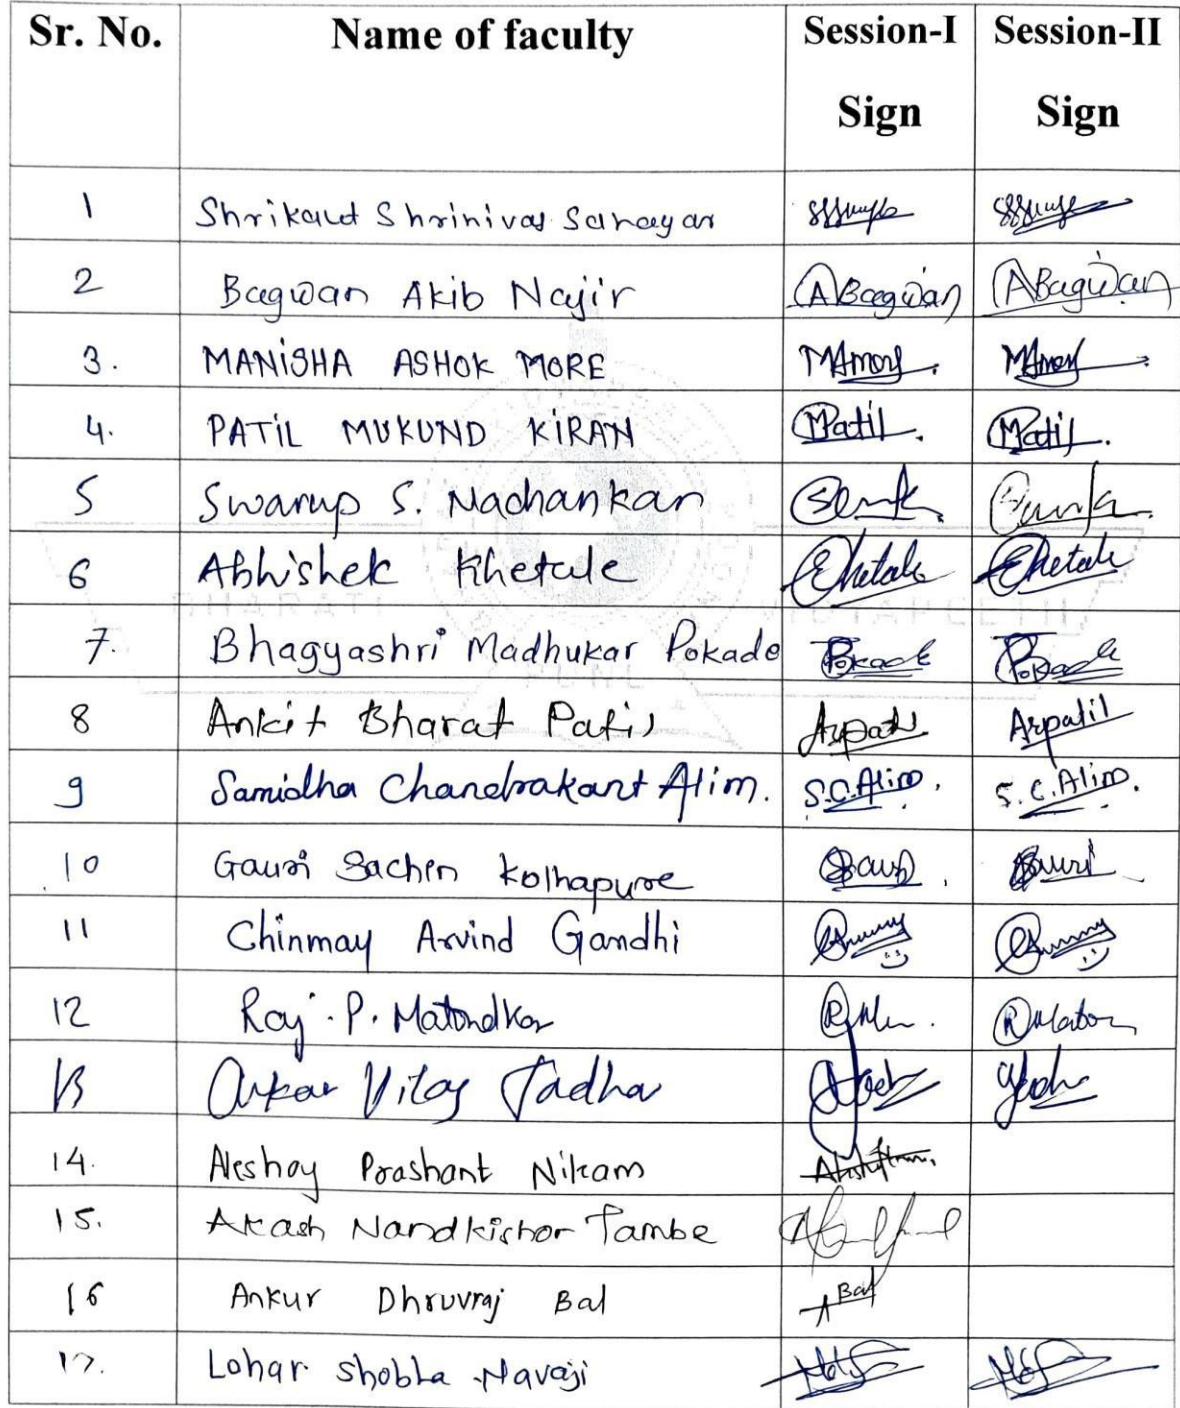 Sr. No. Name of faculty Session-I Sign Session-II Sign
1 Shrikant Shrinivas
2 Bagwan Akib Najir ABagwan ABagwan
3. MANISHA ASHOK MORE MAmore. MAmore
4. PATIL MUKUND KIRAN MPatil. MPatil.
5 Swarup S. Nachankar
6 Abhishek Khetale Khetale Khetale
7. Bhagyashri Madhukar Pokade Pokade Pokade
8 Ankit Bharat Patil Arpatil Arpatil
9 Samidha Chandrakant Alim. S.C.Alim. S.C.Alim.
10 Gauri Sachin Kolhapure Gauri. Gauri
11 Chinmay Arvind Gandhi
12 Raj. P. Matondkar
13 Omkar Vilas Jadhav
14. Akshay Prashant Nikam
15. Akash Nandkishor Tambe
16 Ankur Dhruvraj Bal ABal
17. Lohar Shobha Navaji
BHARATI VIDYAPEETH
PUNE